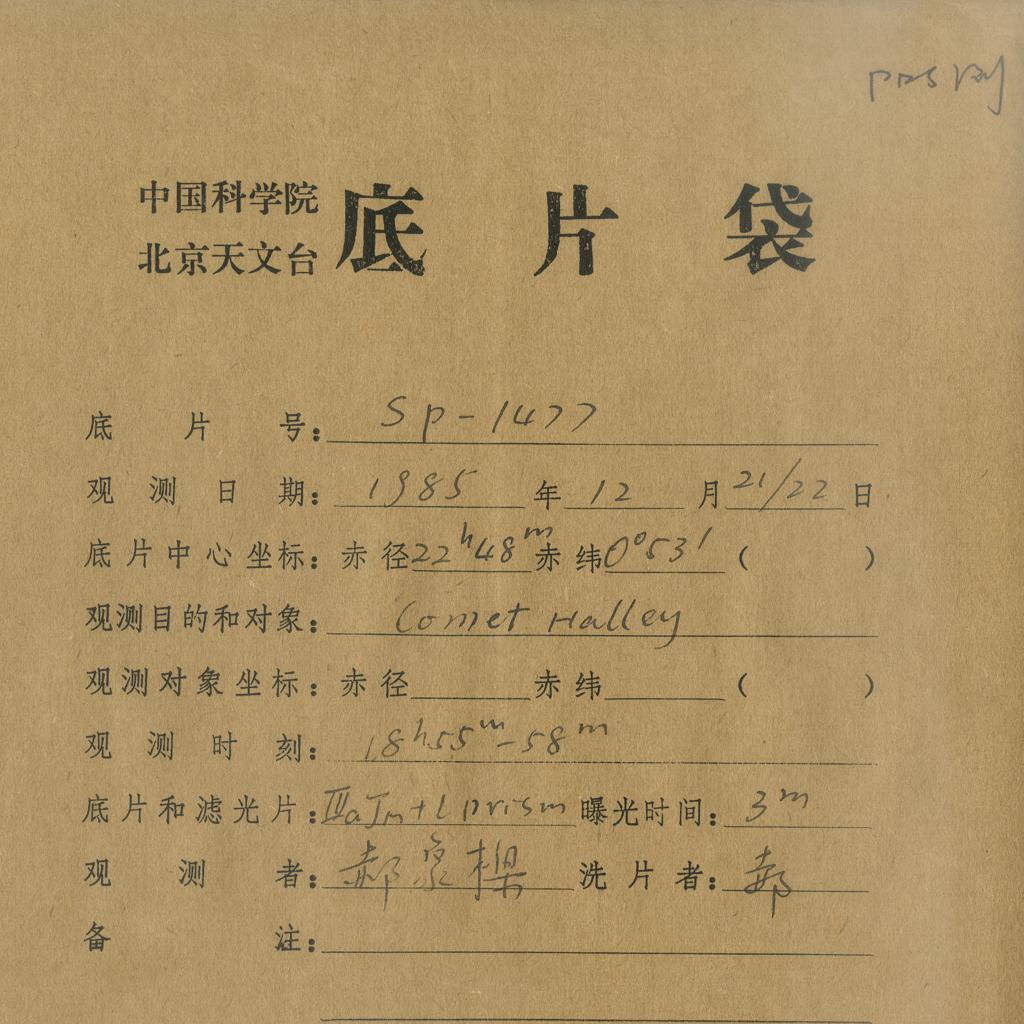 中国科学院
北京天文台
底片袋
底片号: Sp-1477
观测日期: 1985年12月21/22日
底片中心坐标: 赤径22ʰ48ᵐ赤纬0°53′( )
观测目的和对象: Comet Halley
观测对象坐标: 赤径 赤纬 ( )
观测时刻: 18ʰ55ᵐ-58ᵐ
底片和滤光片: IIIaJ + L prism 曝光时间: 3ᵐ
观测者: 郝 洗片者: 郝
备注: